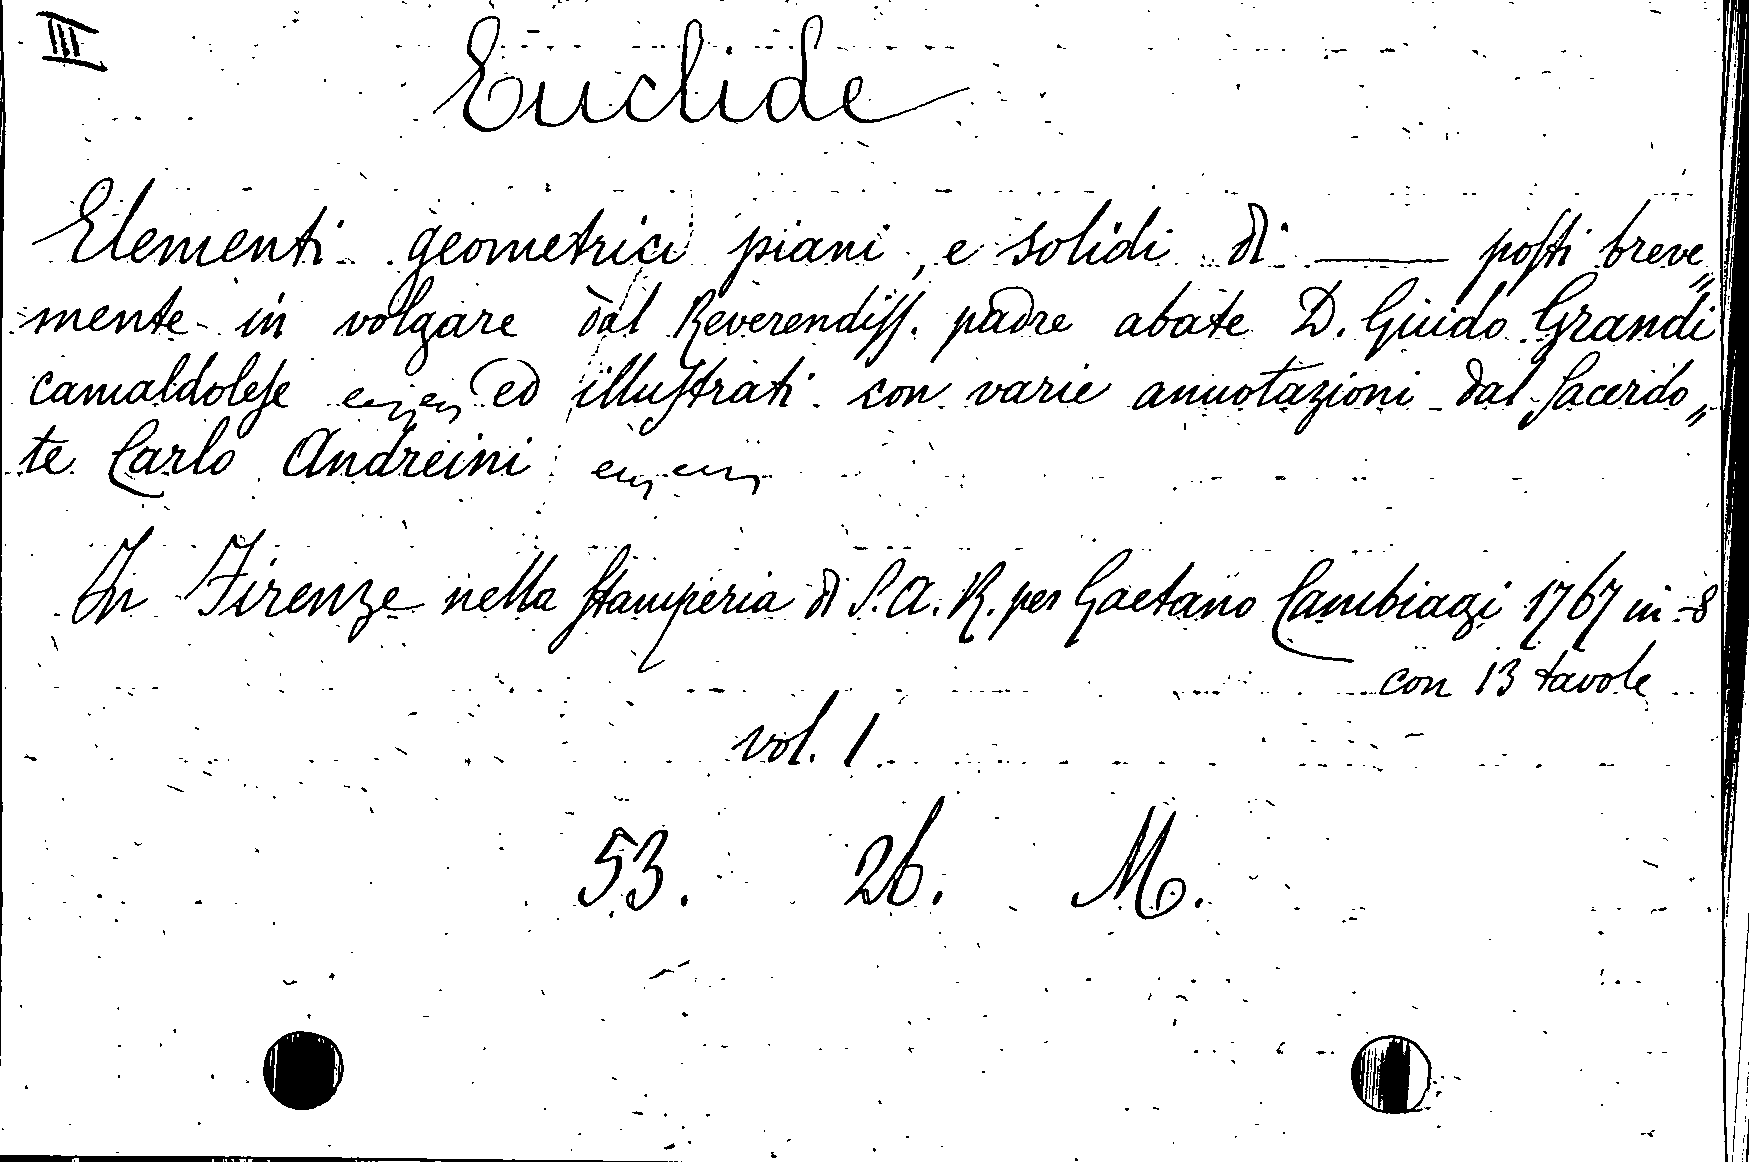 III
Euclide
Elementi geometrici piani, e solidi di —— poſti breve„
mente in volgare dal Reverendiſſ. padre abate D. Guido Grandi
camaldoleſe ed illuſtrati con varie annotazioni dal ſacerdo„
te Carlo Andreini
In Firenze nella ſtamperia di S. A. R. per Gaetano Cambiagi 1767 in-8
con 13 tavole
vol. 1
53. 26. M.